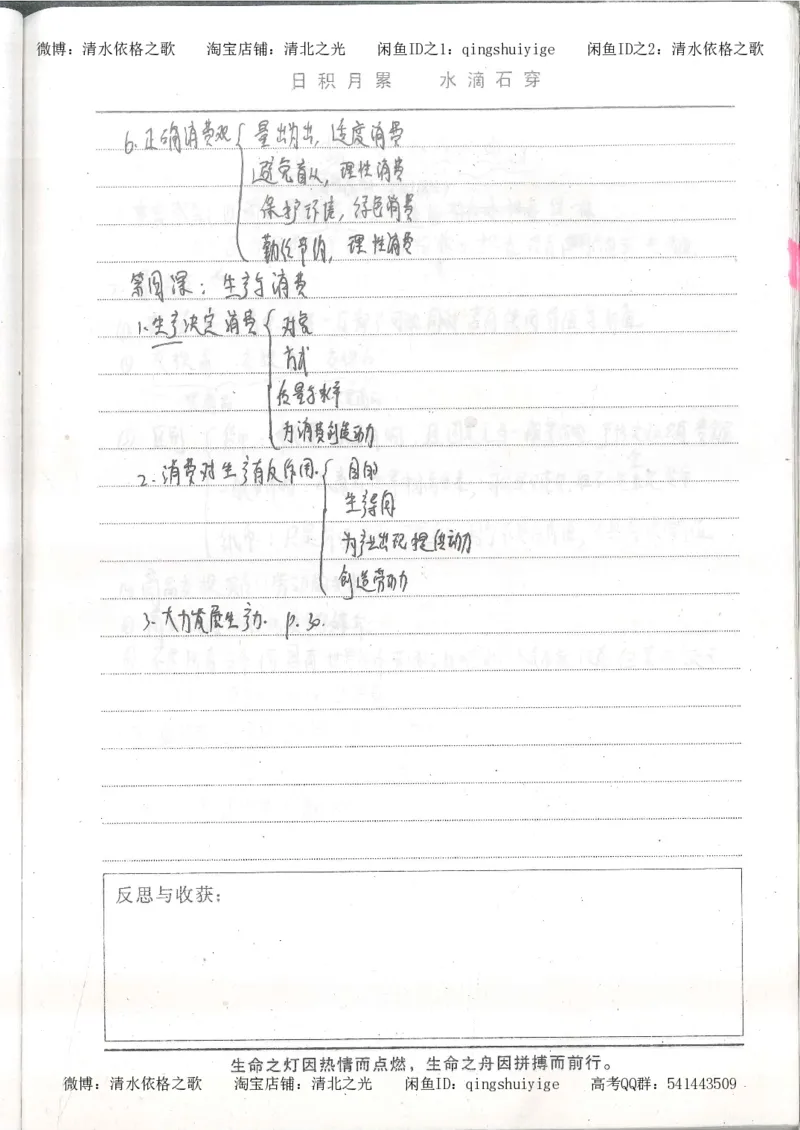 微博：清水依格之歌 淘宝店铺：清北之光 闲鱼ID之1：qingshuiyige 闲鱼ID之2：清水依格之歌
日积月累 水滴石穿
6.正确消费观{量出为出，适度消费
避免盲从，理性消费
保护环境，绿色消费
勤俭节约，理性消费
第四课：生产与消费
1.生产决定消费{对象
方式
质量与水平
为消费创造动力
2.消费对生产有反作用.{目的
生产导向
为产业出现提供动力
创造劳动力
3.大力发展生产力. P.30.
反思与收获：
生命之灯因热情而点燃，生命之舟因拼搏而前行。
微博：清水依格之歌 淘宝店铺：清北之光 闲鱼ID：qingshuiyige 高考QQ群：541443509